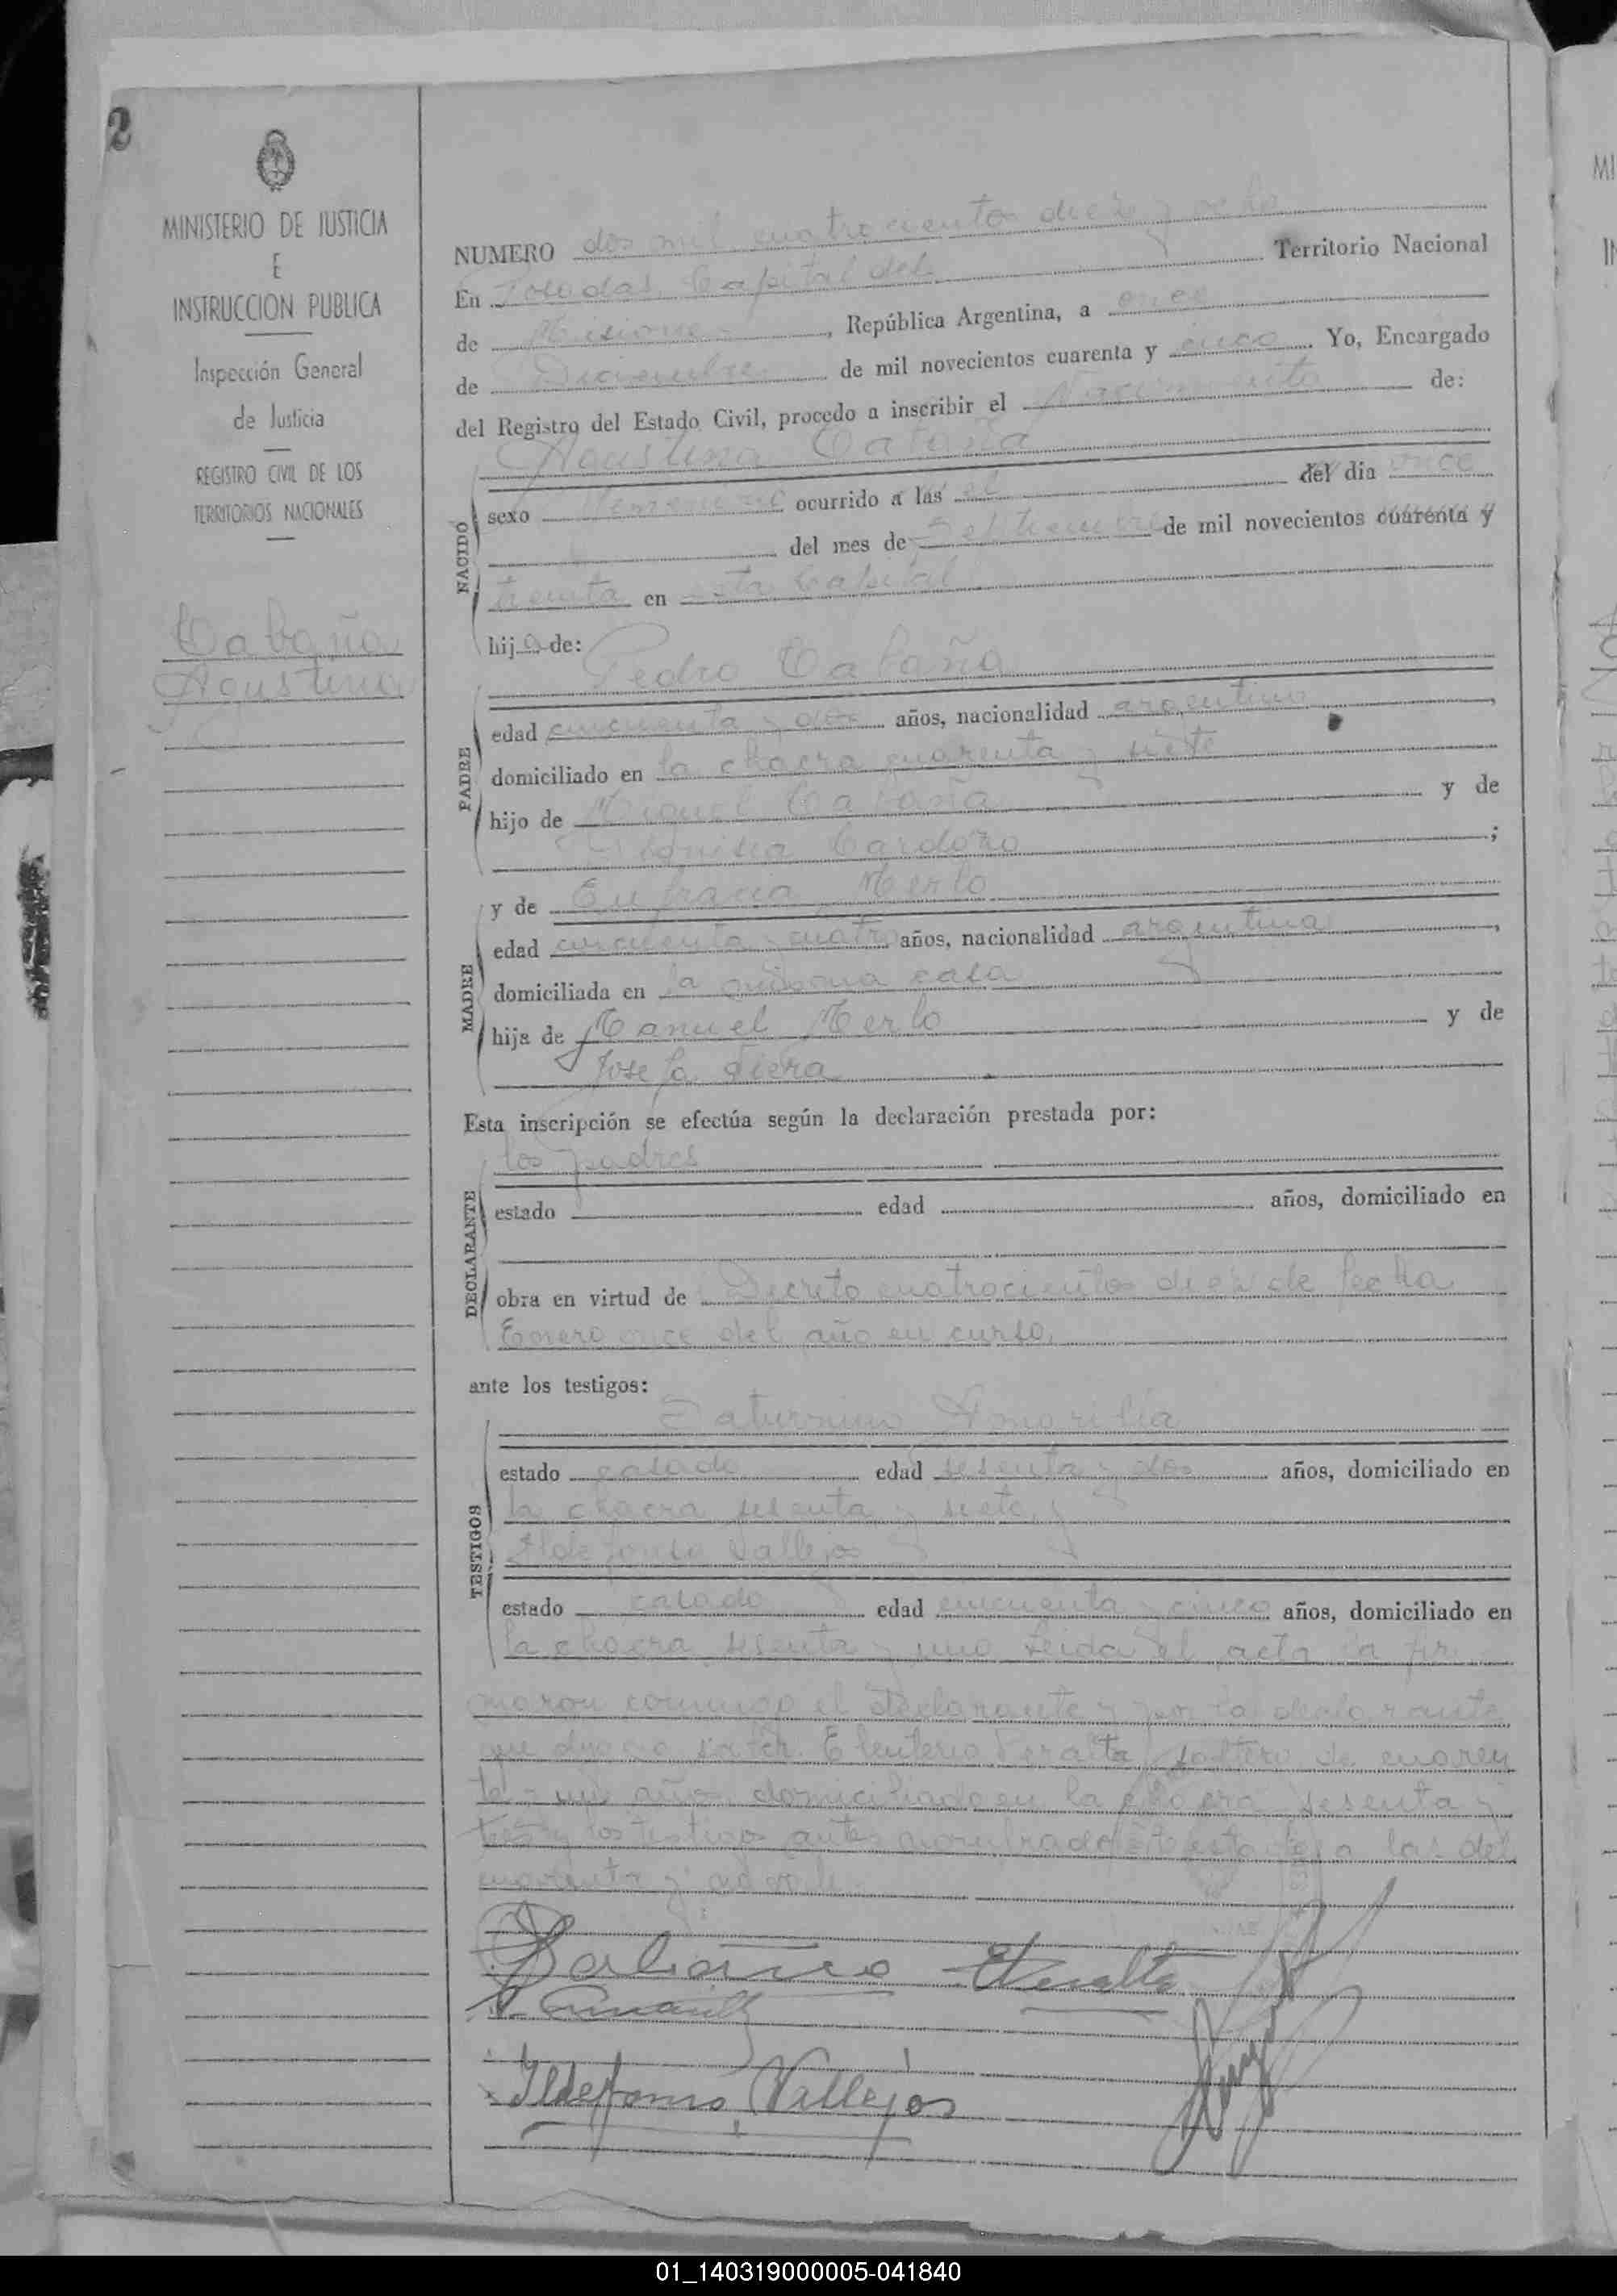 2
MINISTERIO DE JUSTICIA
E
INSTRUCCION PUBLICA
Inspección General
de Justicia
REGISTRO CIVIL DE LOS
TERRITORIOS NACIONALES
Cabaña
Agustina
NUMERO dos mil cuatrocientos diez y ocho
En Posadas, Capital del Territorio Nacional
de Misiones, República Argentina, a once
de Diciembre de mil novecientos cuarenta y cinco. Yo, Encargado
del Registro del Estado Civil, procedo a inscribir el Nacimiento de:
Agustina Cabaña
NACIDO
sexo Femenino ocurrido a las el del dia once
del mes de Septiembre de mil novecientos cuarenta y
treinta en esta Capital
hija de:
Pedro Cabaña
PADRE
edad cincuenta y dos años, nacionalidad argentino,
domiciliado en la chacra cuarenta y siete
hijo de Miguel Cabaña y de
Dionisia Cardozo;
y de Eufracia Merlo
MADRE
edad cincuenta y cuatro años, nacionalidad argentina,
domiciliada en la misma casa
hija de Manuel Merlo y de
Josefa
Esta inscripción se efectúa según la declaración prestada por:
los padres
DECLARANTE
estado edad años, domiciliado en
obra en virtud de Decreto cuatrocientos diez de fecha
Enero once del año en curso.
ante los testigos:
Saturnino
TESTIGOS
estado casado edad sesenta y dos años, domiciliado en
la chacra sesenta y siete y
Ildefonso Vallejos
estado casado edad cincuenta y cinco años, domiciliado en
la chacra sesenta y uno Leida el acta la fir
maron conmigo el declarante y por la declarante
que dijo no saber Eleuterio Peralta, soltero de cuaren
ta y un años domiciliado en la chacra sesenta y
y los testigos antes nombrados a las del
cuarenta y
Peralta
Ildefonso Vallejos
01_140319000005-041840